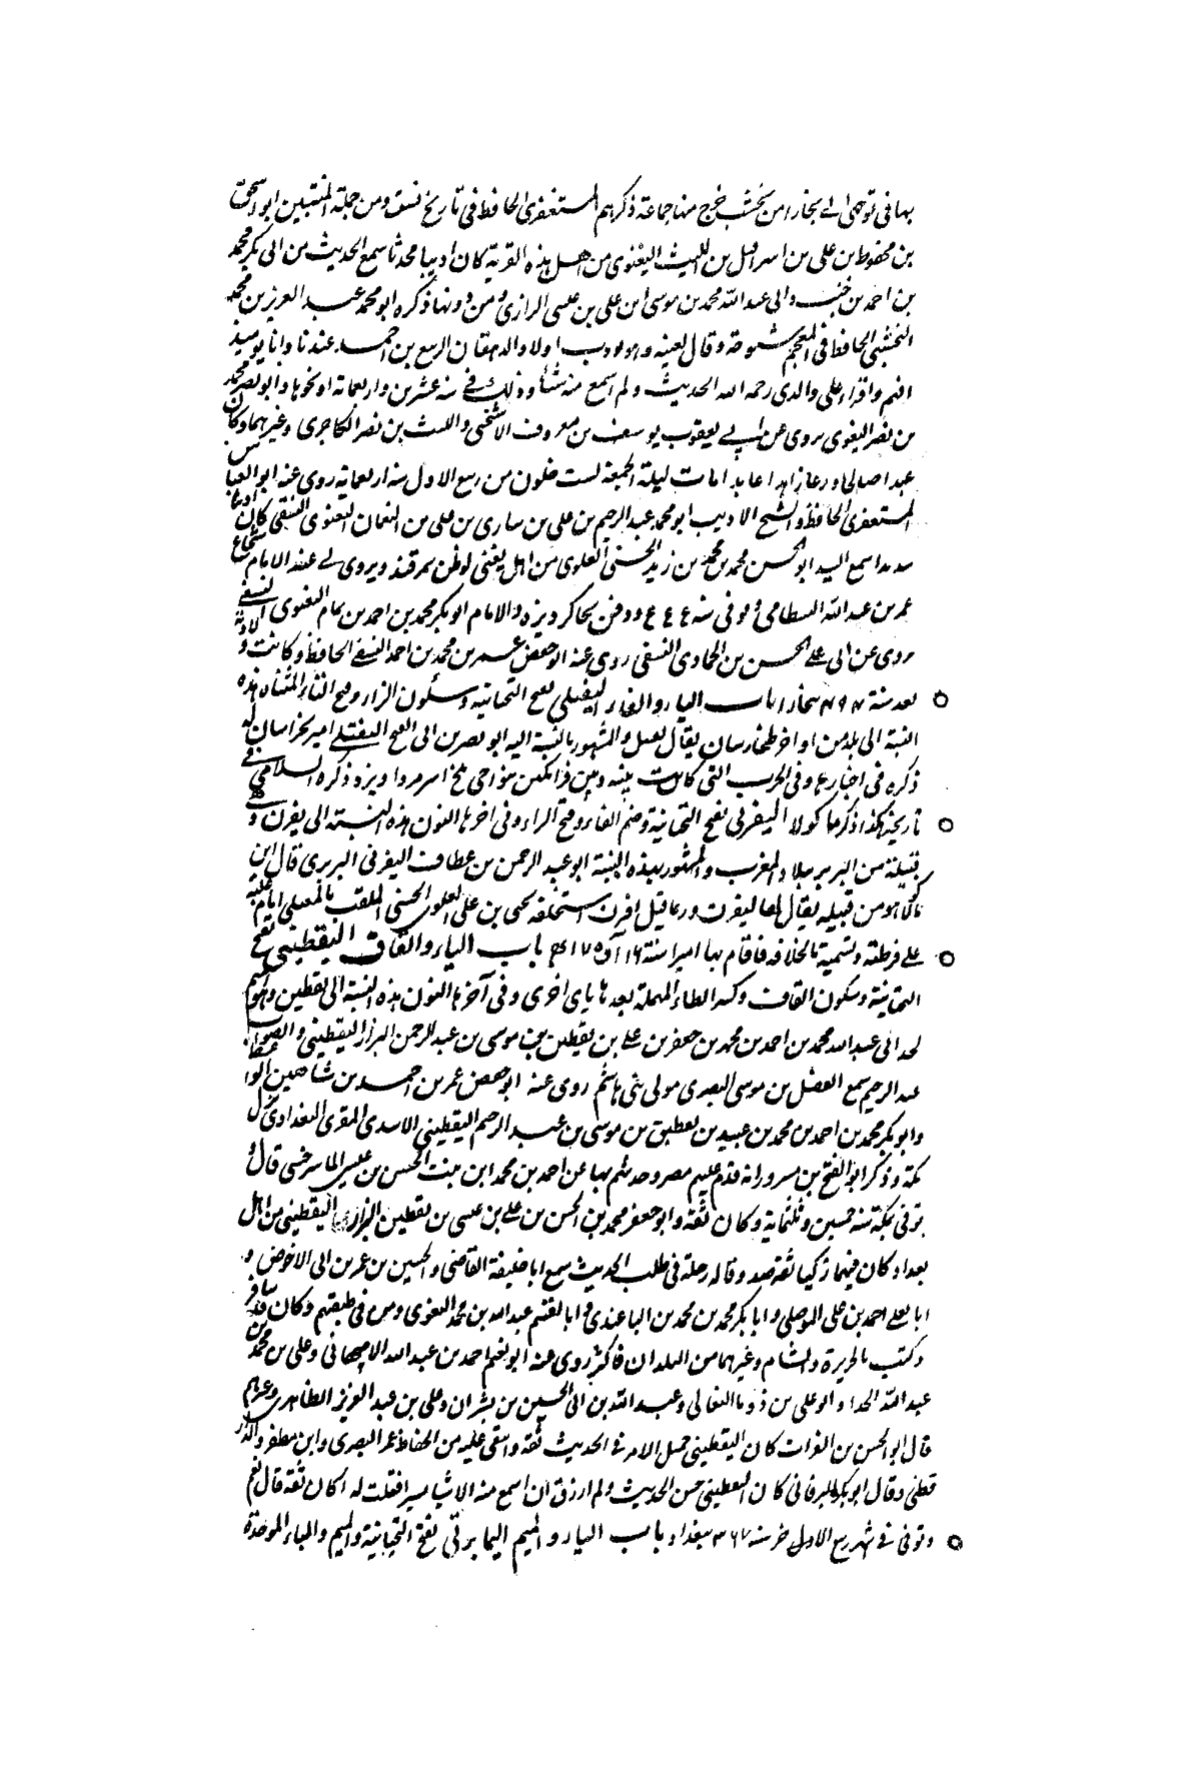 بها فى توجهى الى بخارا من نخشب خرج منها جماعة ذكرهم المستغفرى الحافظ فى تاريخ نسف ومن جملة المنتسبين ابو اسحق
بن محفوظ بن على بن اسرافيل بن الليث اليغنوى من اهل هذه القرية كان اديبا محدثا سمع الحديث من ابى بكر محمد
بن احمد بن خنب وابى عبد الله محمد بن موسى بن على بن عيسى الرازى ومن دونها ذكره ابو محمد عبد العزيز بن محمد
النخشبى الحافظ فى المعجم شيوخه وقال لقيته وهو مودب اولاد الدهقان الربيع بن احمد عندنا وانا يومئذ
افهم واقراء على والدى رحمه الله الحديث ولم اسمع منه شئا وذلك فى سنه عشرين واربعماية او نحوها وابو نصر محمد
من نصر اليغوى يروى عن ابى يعقوب يوسف بن معروف الاشتخى والليث بن نصر الكاجرى وغيرهما وكان
عبدا صالحا ورعا زاهدا عابدا مات ليلة الجمعة لست خلون من ربيع الاول سنه اربعمايه روى عنه ابو العباس
المستغفرى الحافظ والشيخ الاديب ابو محمد عبد الرحيم بن على بن سارى بن على بن النعمان اليغنوى النسفى كان اديبا
سمع السيد ابو الحسن محمد بن محمد بن زيد الحسنى العلوى من اهل يغنى توطن سمرقند ويروى لى عنه الامام شجاع
عمر بن عبد الله البسطامى وتوفى سنه ٤٤٤ ودفن بجاكرديزه والامام ابو بكر محمد بن احمد بن تمام اليغنوى النسفى
يروى عن ابى على الحسن بن الحمادى النسفى روى عنه ابو حفص عمر بن محمد بن احمد النسفى الحافظ وكانت ولادته
بعد سنة ٤٩٠ ببخارا باب الياء والفاء اليفتلى بفتح التحتانية وسكون الزاء وفتح التاء المثناه هذه
النسبة الى بلد من اواخر طخارستان يقال يفتل والمشهور بالنسبة اليه ابو نصر بن ابى الفتح اليفتلى امير خراسان له
ذكره فى اخبارها وفى الحرب التى كانت بينه وبين قراتكين بنواحى بلخ ذكره السلامى فى
تاريخه هكذا ذكر ماكولا اليفرنى بفتح التحتانية وضم الفاء وفتح الراء وفى اخرها النون هذه النسبة الى يفرن وهى
قبيلة من البربر ببلاد المغرب والمشهور بهذه النسبة ابو عبد الرحمن بن عطاف اليفرنى البربرى قال ابن
ماكولا هو من قبيله يقال لها يفرن وربما قيل افرن استخلفه يحيى بن على العلوى الحسنى الملقب بالمعلى ايام غلبته
على قرطبة وتسميه بالخلافه فاقام بها اميرا سنة ٤١٦ الى ٤١٧ باب الياء والقاف اليقطينى بفتح
التحتانية وسكون القاف وكسر الطاء المهملة بعدها ياى اخرى وفى آخرها النون هذه النسبة الى يقطين وهو اسم
لجد ابى عبد الله محمد بن احمد بن محمد بن جعفر بن على بن يقطين بن موسى بن عبد الرحمن البزاز اليقطينى
عبد الرحيم سمع الفضل بن موسى البصرى مولى بنى هاشم روى عنه ابو حفص عمر بن احمد بن شاهين الواعظ
وابو بكر محمد بن احمد بن محمد بن عبيد بن يقطين بن موسى بن عبد الرحيم اليقطينى الاسدى المقرى البغدادى نزل
بمكة وذكر ابو الفتح بن مسرور انه قدم عليهم مصر وحدثهم بها عن احمد بن محمد ابن بنت الحسن بن عيسى الماسرخسى قال و
توفى بمكة سنه خمسين وثلثمائة وكان ثقة وابو جعفر محمد بن الحسن بن على بن عيسى بن يقطين البزاز اليقطينى من اهل
بغداد كان فهما زكيا ثقه وقاله رحلة فى طلب الحديث سمع ابا خليفة القاضى والحسين بن عمر بن ابى الاخوص و
ابا يعلى احمد بن على الموصلى وابا بكر محمد بن محمد بن الباغندى وابا القسم عبد الله بن محمد البغوى ومن فى طبقتهم وكان قد سافر
وكتب بالجزيرة والشام وغيرهما من البلدان فاكثر روى عنه ابو نعيم احمد بن عبد الله الاصبهانى وعلى بن محمد بن
عبد الله الحذاء وابو على بن ذوما النعالى وعبد الله بن ابى الحسين بن بشران وعلى بن عبد العزيز الطاهرى وغيرهم
قال ابو الحسن بن الفرات كان اليقطينى جميل الامر فى الحديث ثقة وانتقى عليه من الحفاظ عمر البصرى وابن مظفر والدار
قطنى وقال ابو بكر البرقانى كان اليقطينى حسن الحديث ولم ارزق ان اسمع منه الا شيا يسيرا فقلت له اكان ثقة قال نعم
وتوفى فى شهر ربيع الاول خر سنه ٣٦٧ ببغداد باب الياء والميم اليمابرتى بفتح التحتانية والميم والباء الموحدة